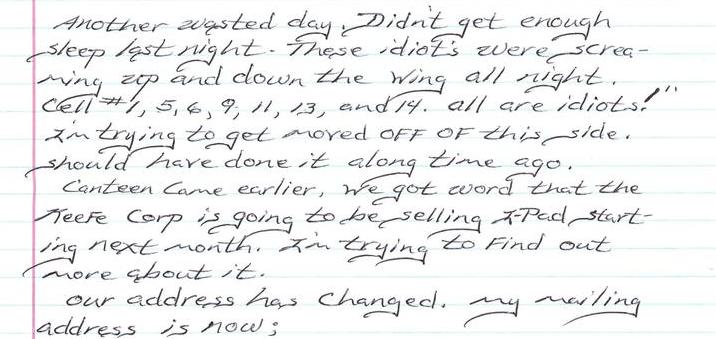 Another wasted day. Didn't get enough
sleep last night. These idiot's were screa-
ming up and down the wing all night.
Cell #1, 5, 6, 9, 11, 13, and 14. all are idiots!"
I'm trying to get moved OFF OF this side.
should have done it along time ago.
Canteen Came earlier, We got word that the
Keefe Corp is going to be selling I-Pad start-
ing next month. I'm trying to Find out
more about it.
our address has Changed. my mailing
address is now;